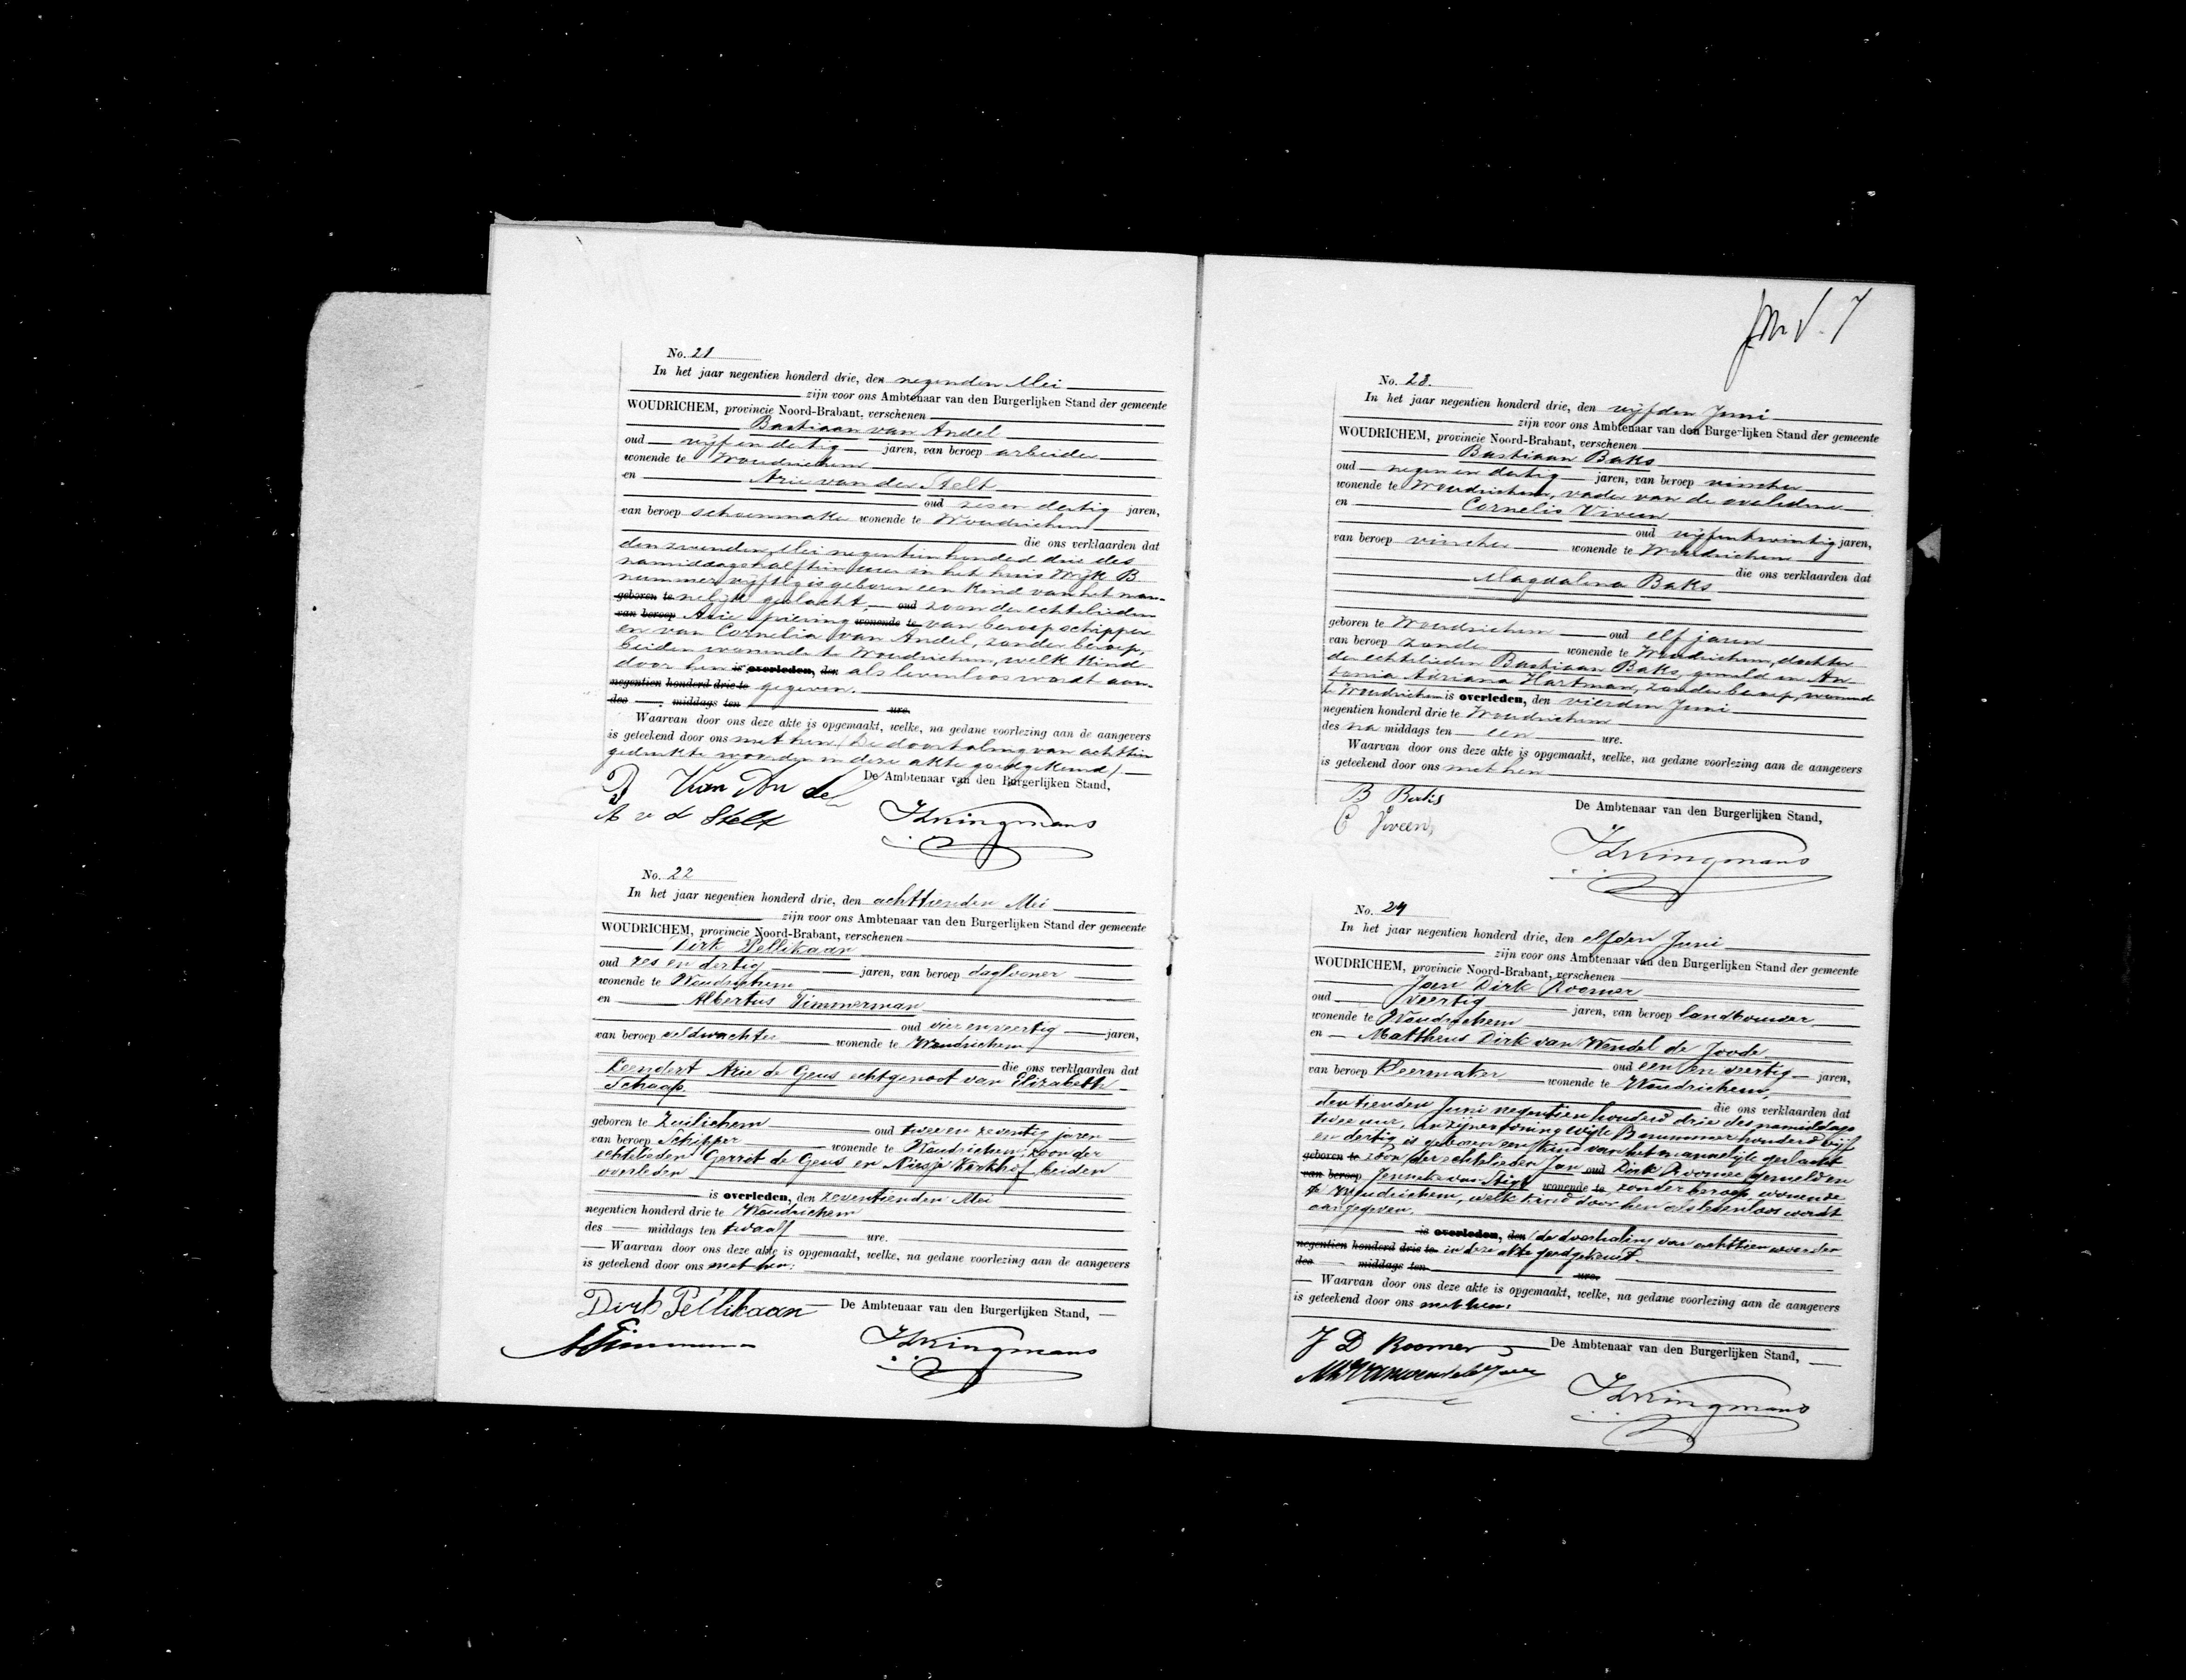 No. 21
In het jaar negentien honderd drie, den negenden Mei
zijn voor ons Ambtenaar van den Burgerlijken Stand der gemeente
WOUDRICHEM, provincie Noord-Brabant, verschenen
Bastiaan van Andel
oud vijf en dertig jaren, van beroep arbeider
wonende te Woudrichem
en Arie van der Stelt
oud zes en dertig jaren,
van beroep schoenmaker wonende te Woudrichem
die ons verklaarden dat
den Mei negentien honderd drie des
namiddags half tien uur in het huis Wijk B
nummer vijftig is geboren een kind van het man-
geboren te nelijk geslacht, oud zoon der echtelieden
van beroep Arie Spiering wonende te van beroep schipper
en van Cornelia van Andel, zonder beroep,
beiden wonende te Woudrichem, welk kind
door hen is overleden, den als levenloos wordt aan-
negentien honderd drie te gegeven.
des middags ten ure.
Waarvan door ons deze akte is opgemaakt, welke, na gedane voorlezing aan de aangevers
is geteekend door ons met hen (De doorhaling van achttien
gedrukte woorden in deze akte goedgekeurd).
B Van Andel De Ambtenaar van den Burgerlijken Stand,
A v d Stelt Kringmans
No. 22
In het jaar negentien honderd drie, den achttienden Mei
zijn voor ons Ambtenaar van den Burgerlijken Stand der gemeente
WOUDRICHEM, provincie Noord-Brabant, verschenen
Dirk Pellikaan
oud zes en dertig jaren, van beroep daglooner
wonende te Woudrichem
en Albertus Timmerman
oud vier en veertig jaren,
van beroep veldwachter wonende te Woudrichem
die ons verklaarden dat
Leendert Arie de Geus echtgenoot van Elizabeth
Schaap
geboren te Zuilichem oud twee en zeventig jaren
van beroep Schipper wonende te Woudrichem, zoon der
echtelieden Gerrit de Geus en Niesje Kerkhof beiden
overleden
is overleden, den zeventienden Mei
negentien honderd drie te Woudrichem
des middags ten twaalf ure.
Waarvan door ons deze akte is opgemaakt, welke, na gedane voorlezing aan de aangevers
is geteekend door ons met hen.
Dirk Pellikaan De Ambtenaar van den Burgerlijken Stand,
Kringmans
7
No. 23.
In het jaar negentien honderd drie, den vijfden Juni
zijn voor ons Ambtenaar van den Burgerlijken Stand der gemeente
WOUDRICHEM, provincie Noord-Brabant, verschenen
Bastiaan Baks
oud negen en dertig jaren, van beroep visscher
wonende te Woudrichem, vader van de overledene
en Cornelis Viveen
oud vijfentwintig jaren,
van beroep visscher wonende te Woudrichem
die ons verklaarden dat
Magdalena Baks
geboren te Woudrichem oud elf jaren
van beroep zonder wonende te Woudrichem, dochter
der echtelieden Bastiaan Baks, gemeld en An-
tonia Adriana Hartman, zonder beroep, wonende
te Woudrichem is overleden, den vierden Juni
negentien honderd drie te Woudrichem
des na middags ten een ure.
Waarvan door ons deze akte is opgemaakt, welke, na gedane voorlezing aan de aangevers
is geteekend door ons met hen
B Baks De Ambtenaar van den Burgerlijken Stand,
C Viveen
Kringmans
No. 24
In het jaar negentien honderd drie, den elfden Juni
zijn voor ons Ambtenaar van den Burgerlijken Stand der gemeente
WOUDRICHEM, provincie Noord-Brabant, verschenen
Jan Dirk Roomer
oud veertig jaren, van beroep landbouwer
wonende te Woudrichem
en Mattheus Dirk van Wendel de Joode
oud een en veertig jaren,
van beroep kleermaker wonende te Woudrichem,
die ons verklaarden dat
den tienden Juni negentien honderd drie des namiddags
twee uur, in zijne woning Wijk B nummer honderd vijf
en dertig is geboren een kind van het mannelijk geslacht
geboren te zoon der echtelieden Jan oud Dirk Roomer gemeld en
van beroep Jenneke van Stigt wonende te zonder beroep wonende
te Woudrichem, welk kind door hen als levenloos wordt
aangegeven.
is overleden, den (de doorhaling van achttien woorden
negentien honderd drie te in deze akte goedgekeurd.
des middags ten ure.
Waarvan door ons deze akte is opgemaakt, welke, na gedane voorlezing aan de aangevers
is geteekend door ons met hen.
J D Roomer De Ambtenaar van den Burgerlijken Stand,
Kringmans